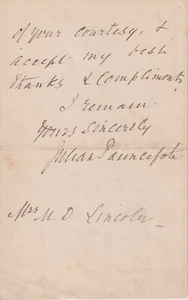 of your courtesy, &
accept my best
thanks & compliments
I remain
Yours Sincerely
Julian Pauncefote
Mrs M. D. Lincoln